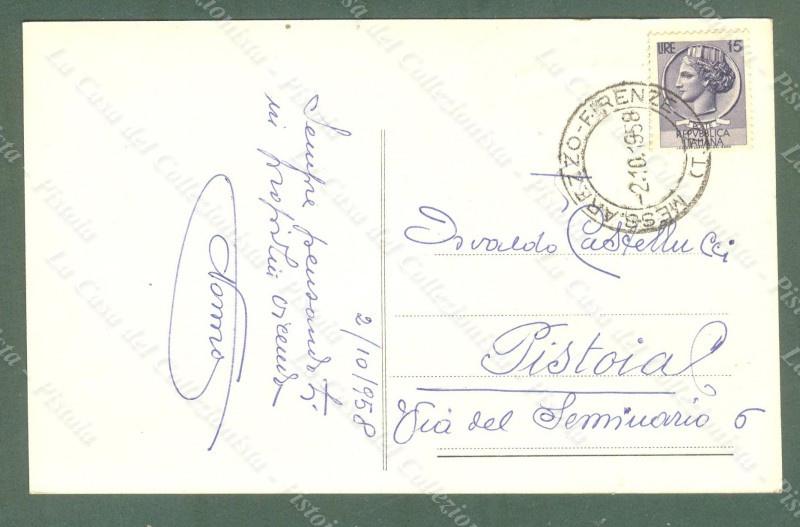 LIRE 15
POSTE
REPVBBLICA
ITALIANA
MESS. AREZZO-FIRENZE (T.)
-2.10.1958
Sempre pensandoti
mi
2/10/1958
Osvaldo Castellucci
Pistoia
Via del Seminario 6
La Casa del Collezionista - Pistoia